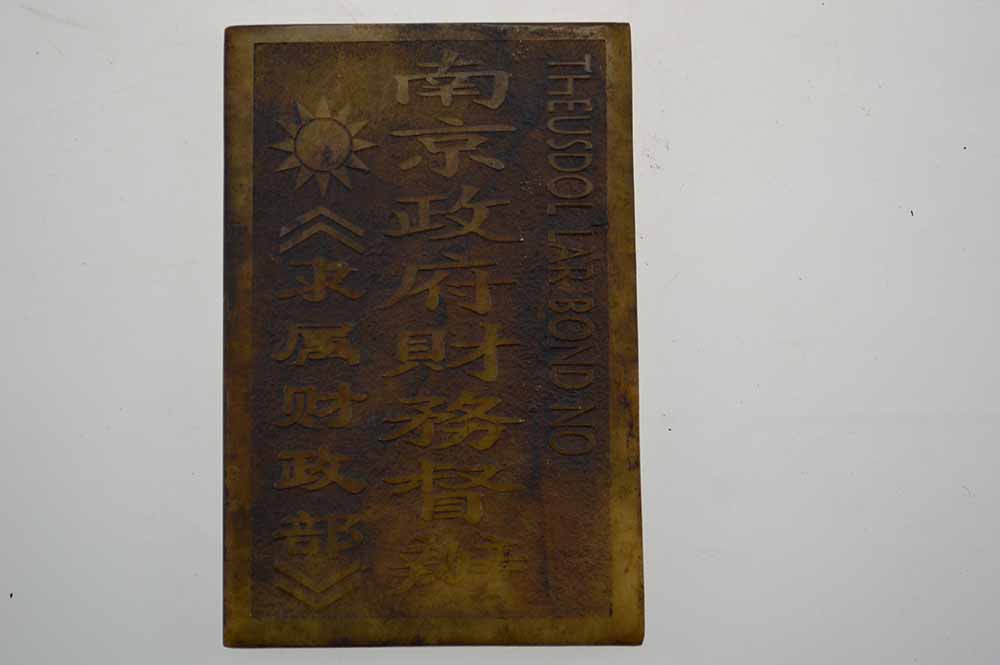 THEUSDOL LAR BOND NO
南京政府財務督辦
《隶属财政部》